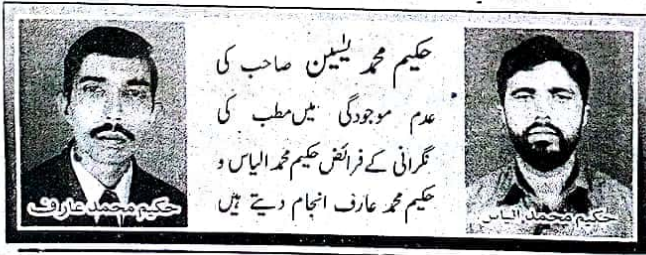 حکیم محمد یٰسین صاحب کی
عدم موجودگی میں مطب کی
نگرانی کے فرائض حکیم محمد الیاس و
حکیم محمد عارف انجام دیتے ہیں
حکیم محمد الیاس
حکیم محمد عارف